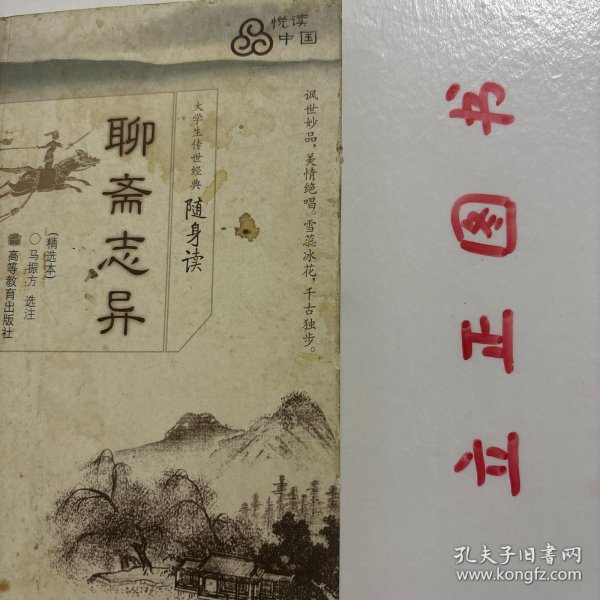 悦读
中国
讽世妙品，美情绝唱。雪蕊冰花，千古独步。
大学生传世经典
随身读
聊斋志异
（精选本）
○马振方 选注
高等教育出版社
立正图书
孔夫子旧书网
www.kongfz.com